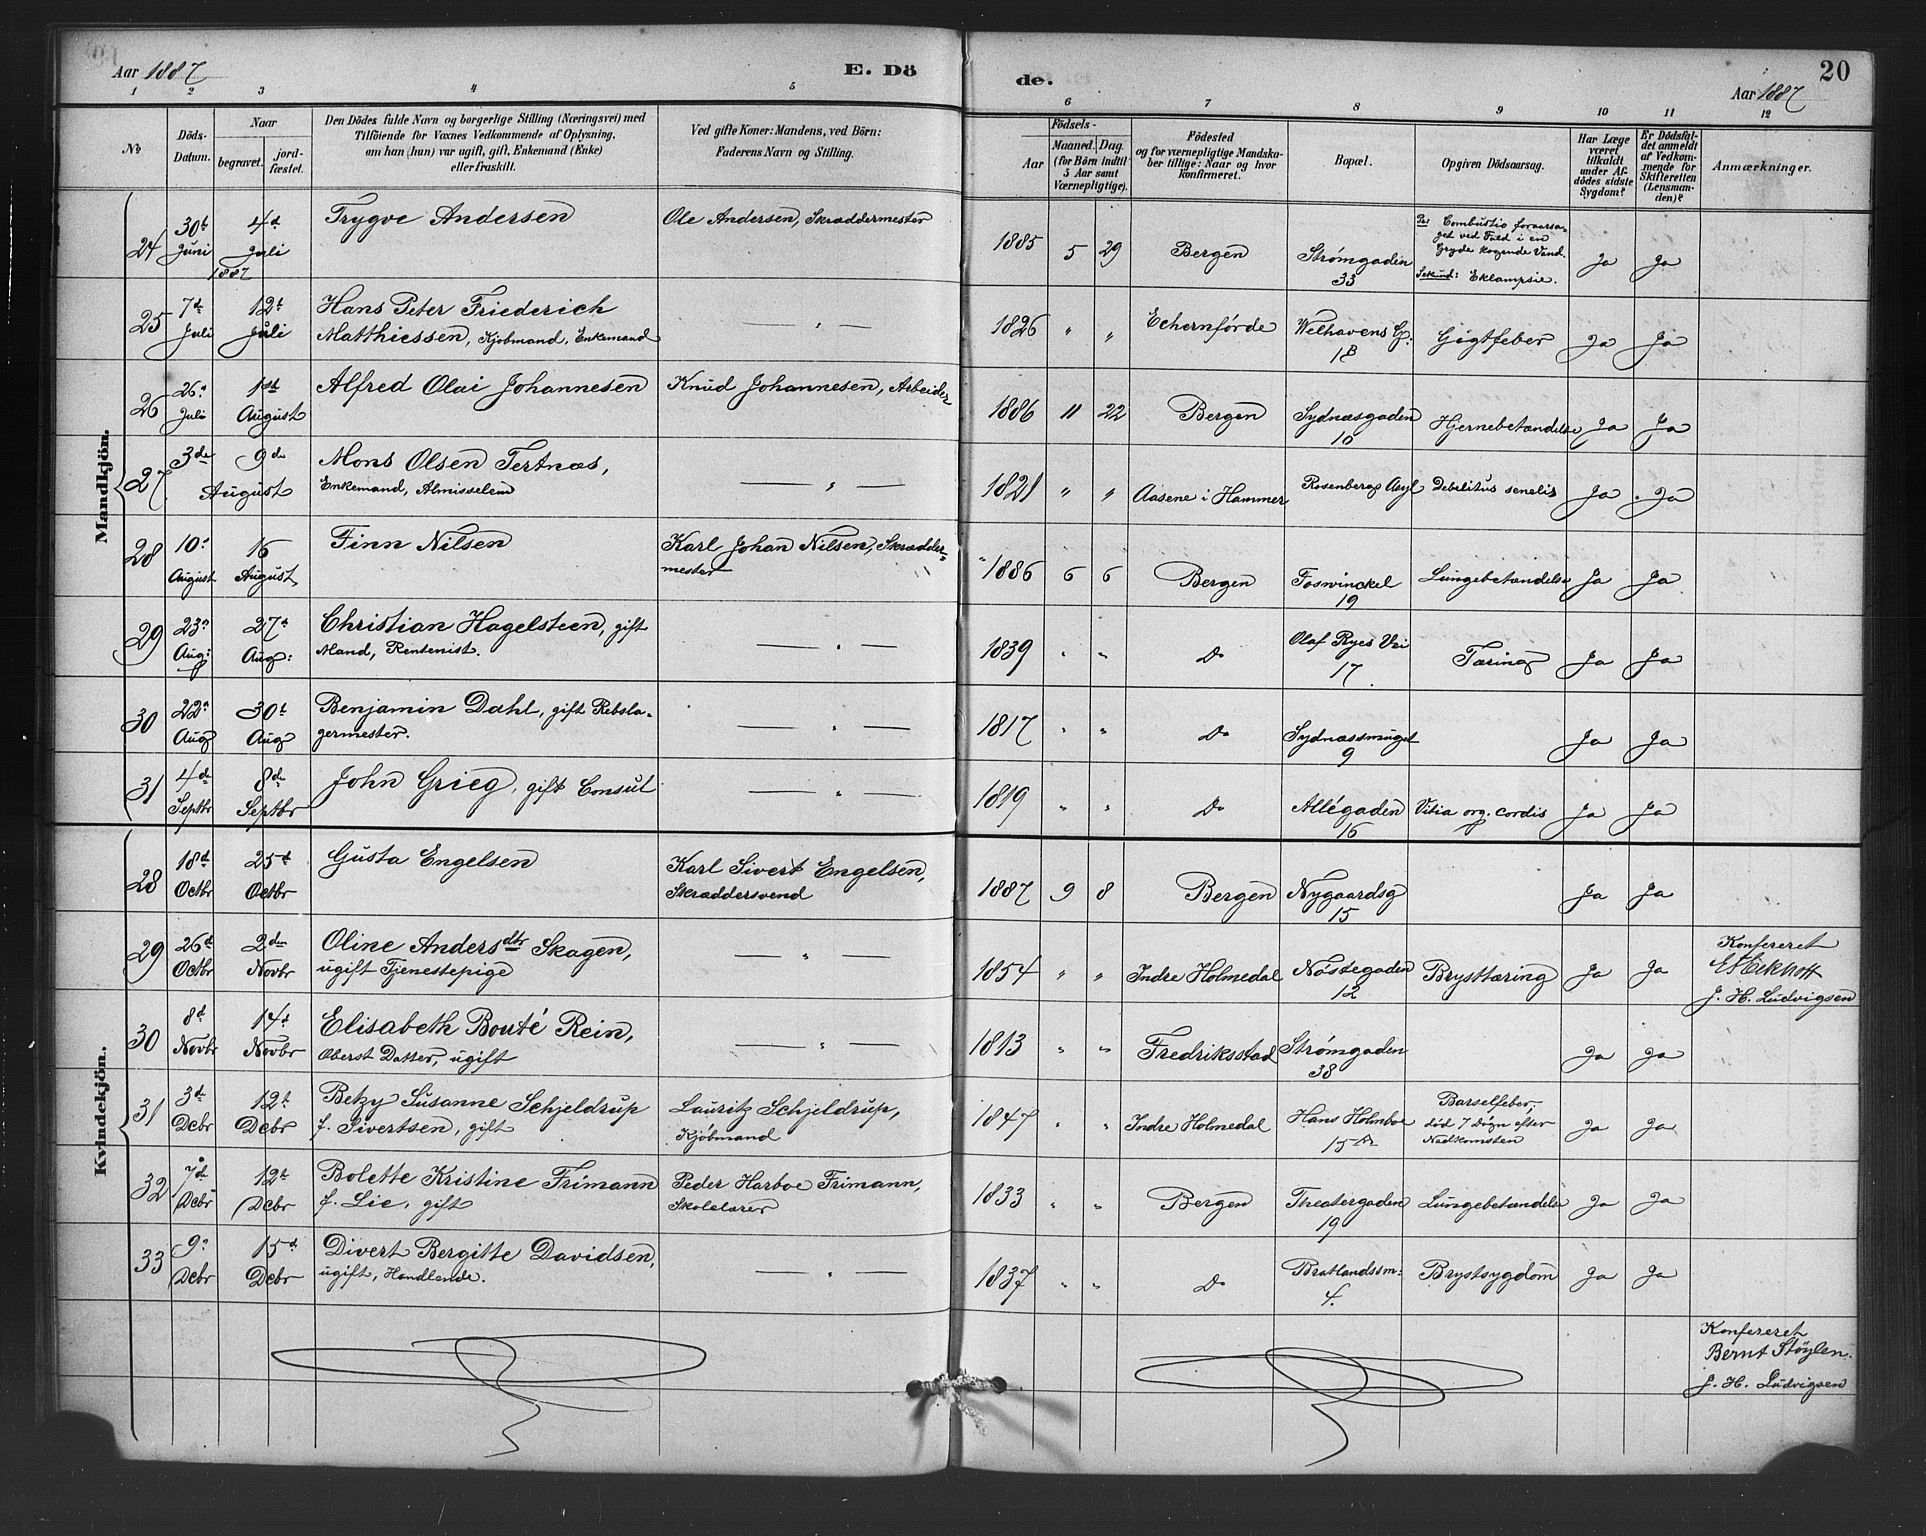 Aar 1887
E. Dö
de.
20
Aar 1887
1 2 3 4 5 6 7 8 9 10 11 12
No
Döds-Datum.
Naar
begravet.
jord-fæstet.
Den Dödes fulde Navn og borgerlige Stilling (Næringsvei) med
Tilföiende for Voxnes Vedkommende af Oplysning,
om han (hun) var ugift, gift, Enkemand (Enke)
eller fraskilt.
Ved gifte Koner: Mandens, ved Börn:
Faderens Navn og Stilling.
Födsels-
Aar
Maaned. Dag.
(for Börn indtil
5 Aar samt
Værnepligtige).
Födested
og for værnepligtige Mandska-
ber tillige: Naar og hvor
konfirmeret.
Bopæl.
Opgiven Dödsaarsag.
Har Læge
været
tilkaldt
under Af-
dödes sidste
Sygdom?
Er Dödsfal-
det anmeldt
af Vedkom-
mende for
Skifteretten
(Lensman-
den)?
Anmærkninger.
Mandkjön.
24 30t Juni 4d Juli 1887 Trygve Andersen Ole Andersen, Skræddermester 1885 5 29 Bergen Strømgaden 33 Pr: Combustio foraarsa-
get ved Fald i en
Gryde kogende Vand.
Sekund: Eklampsie. Ja Ja
25 7de Juli 12t Juli Hans Peter Friederich
Matthiessen, Kjøbmand, Enkemand — " — 1826 " " Echernförde Welhavens G: 1B Gigtfeber Ja Ja
26 26 Juli 1st August Alfred Olai Johannesen Knud Johannesen, Arbeider 1886 11 22 Bergen Sydnæsgaden 10 Hjernebetændelse Ja Ja
27 3de 9de August Mons Olsen Tertnæs,
Enkemand, Almisselem — " — 1821 " " Aasene i Hammer Rosenbergs Asyl Debelitus senelis Ja Ja
28 10 August 16 August Finn Nilsen Karl Johan Nilsen, Skrædder-
mester 1886 6 6 Bergen Foswinckel 19 Lungebetændelse Ja Ja
29 23 Aug: 27d Aug: Christian Hagelsteen, gift
Mand, Rentenist. — " — 1839 " " Do Olaf Ryes Vei 17 Tæring Ja Ja
30 22 Aug 30t Aug Benjamin Dahl, gift Rebsla-
germester. — " — 1817 " " Do Sydnæssmuget 9 Ja Ja
31 4de Septbr 8de Septbr John Grieg, gift Consul — " — 1819 " " Do Allégaden 16 Vitia org. cordis Ja Ja
Kvindekjön.
28 18d Octbr 25d Octbr Gusta Engelsen Karl Sivert Engelsen,
Skræddersvend 1887 9 8 Bergen Nygaardsg 15 Ja Ja
29 26d Octbr 2den Novbr Oline Andersdtr Skagen,
ugift Tjenestepige — " — 1854 " " Indre Holmedal Nøstegaden 12 Brysttæring Ja Ja Konfereret
E Eckhoff
J. H. Ludvigsen
30 8d Novbr 14d Novbr Elisabeth Bouté Rein,
Oberst Datter, ugift — " — 1813 " " Fredriksstad Strømgaden 38 Ja Ja
31 3de Dcbr 12t Dcbr Betzy Susanne Schjeldrup
f. Sivertsen, gift Lauritz Schjeldrup,
Kjöbmand 1847 " " Indre Holmedal Hans Holmboe 15 Barselfeber,
død 7 døgn efter
Nedkomsten Ja Ja
32 7de Dcbr 12t Dcbr Bolette Kristine Frimann
f. Lie, gift Peder Harboe Frimann,
Skolelærer 1833 " " Bergen Theatergaden 19 Lungebetændelse Ja Ja
33 9 Dcbr 15d Dcbr Divert Bergitte Davidsen,
ugift, Handlende. — " — 1837 " " Do Bratlandssm: 4. Brystsygdom Ja Ja
Konfereret
Bernt Støylen.
J. H. Ludvigsen